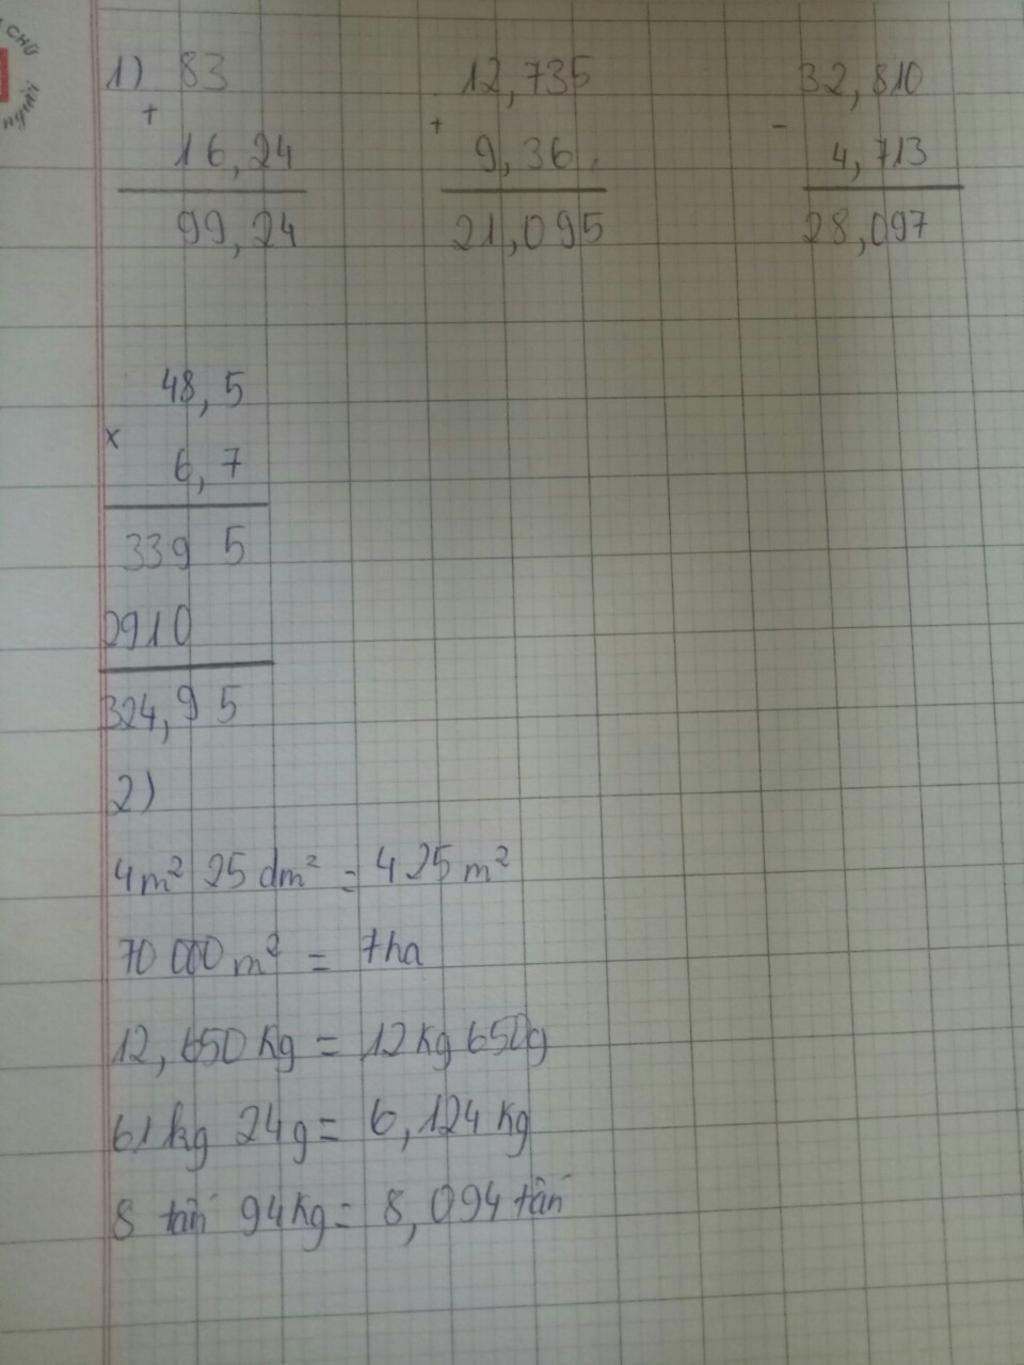 1) 83 12,735 32,810
+ + -
16,24 9,36 4,713
99,24 21,095 28,097
48,5
x
6,7
339 5
2910
324,9 5
2)
4m² 25 dm² = 425 m²
70 000 m² = 7ha
12, 650 Kg = 12 Kg 650g
61 kg 24g = 6,124 Kg
8 tấn 94Kg = 8,094 tấn